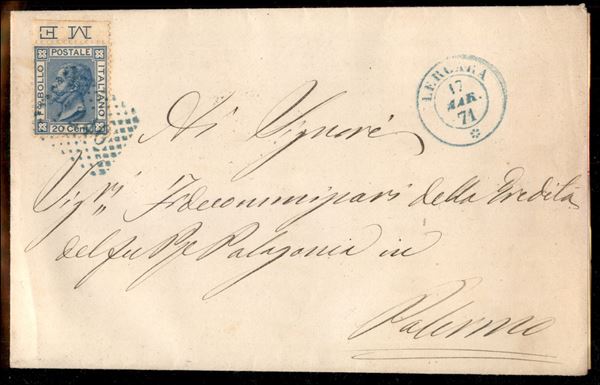 M E
FRANCO BOLLO
POSTALE
ITALIANO
20 Cent
LERCARA
17
MAR.
71
Ai Signori
Sig.ri Fidecommissari della Eredità
del fu Ppe Palagonia in
Palermo